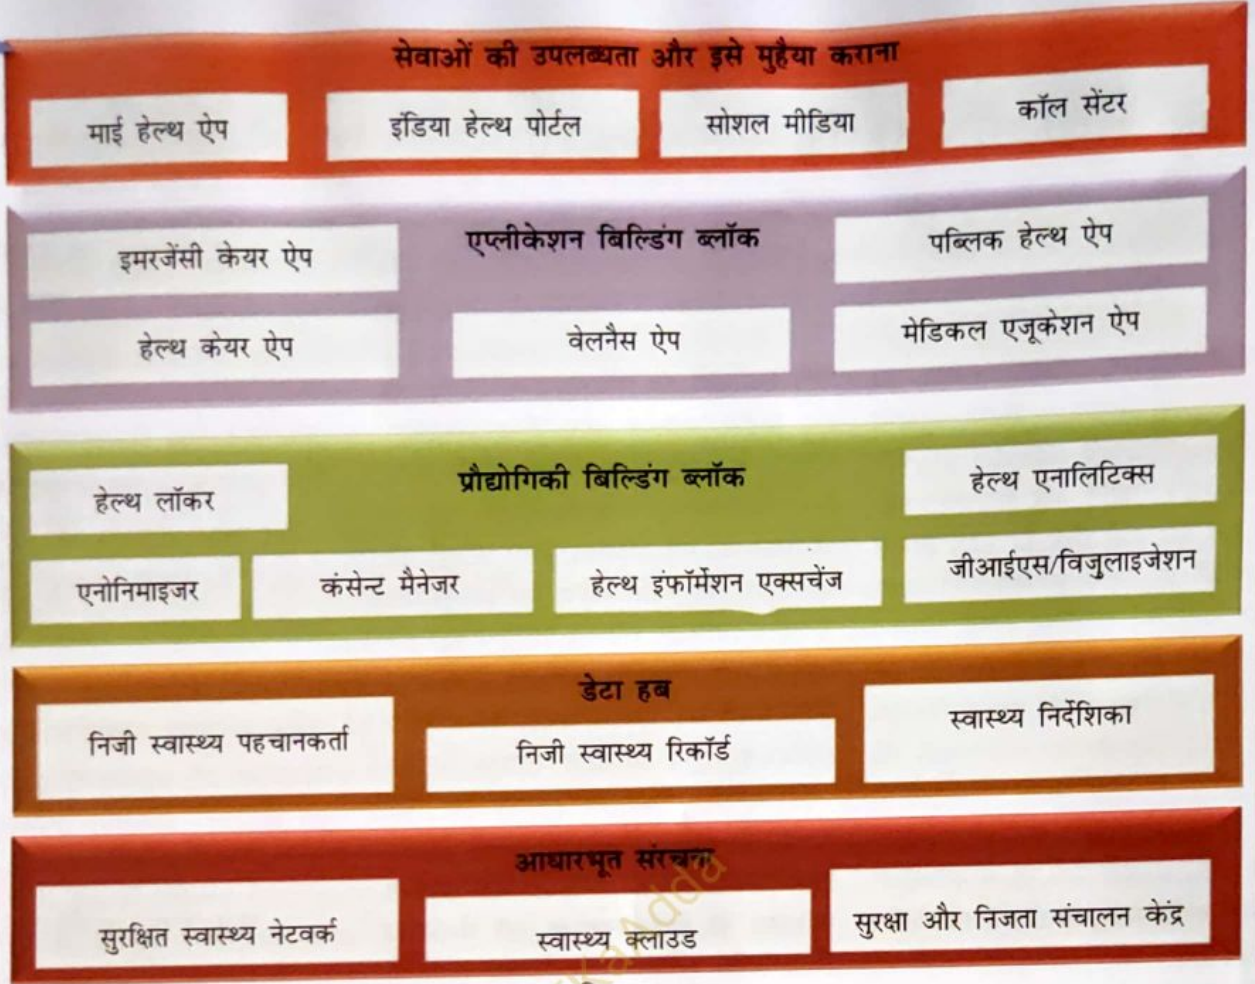 सेवाओं की उपलब्धता और इसे मुहैया कराना
माई हेल्थ ऐप
इंडिया हेल्थ पोर्टल
सोशल मीडिया
कॉल सेंटर
एप्लीकेशन बिल्डिंग ब्लॉक
इमरजेंसी केयर ऐप
पब्लिक हेल्थ ऐप
हेल्थ केयर ऐप
वेलनैस ऐप
मेडिकल एजूकेशन ऐप
प्रौद्योगिकी बिल्डिंग ब्लॉक
हेल्थ लॉकर
हेल्थ एनालिटिक्स
एनोनिमाइजर
कंसेन्ट मैनेजर
हेल्थ इंफॉर्मेशन एक्सचेंज
जीआईएस/विजुलाइजेशन
डेटा हब
निजी स्वास्थ्य पहचानकर्ता
निजी स्वास्थ्य रिकॉर्ड
स्वास्थ्य निर्देशिका
आधारभूत संरचना
सुरक्षित स्वास्थ्य नेटवर्क
स्वास्थ्य क्लाउड
सुरक्षा और निजता संचालन केंद्र
KaAdda